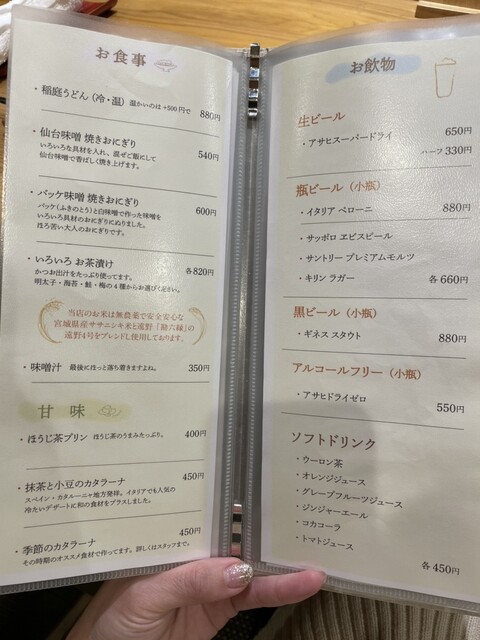 お食事
・稲庭うどん（冷・温） 温かいのは＋500円で 880円
・仙台味噌 焼きおにぎり 540円
いろいろな具材を入れ、混ぜご飯にして
仙台味噌で香ばしく焼き上げます。
・バッケ味噌 焼きおにぎり 600円
バッケ（ふきのとう）と白味噌で作った味噌を
いろいろ具材のおにぎりにぬりました。
ほろ苦い大人のおにぎりです。
・いろいろ お茶漬け 各820円
かつお出汁をたっぷり使ってます。
明太子・海苔・鮭・梅の4種からお選びください。
当店のお米は無農薬で安全安心な
宮城県産ササニシキ米と遠野「勘六縁」の
遠野4号をブレンドし使用しております。
・味噌汁 最後にほっと落ち着きますよね。 350円
甘 味
・ほうじ茶プリン ほうじ茶のうまみたっぷり。 400円
・抹茶と小豆のカタラーナ 450円
スペイン・カタルーニャ地方発祥。イタリアでも人気の
冷たいデザートに和の食材をプラスしました。
・季節のカタラーナ 450円
その時期のオススメ食材で作ってます。詳しくはスタッフまで。
お飲物
生ビール
・アサヒスーパードライ 650円
ハーフ 330円
瓶ビール（小瓶）
・イタリア ペローニ 880円
・サッポロ ヱビスビール
・サントリー プレミアムモルツ
・キリン ラガー 各660円
黒ビール（小瓶）
・ギネス スタウト 880円
アルコールフリー（小瓶）
・アサヒドライゼロ 550円
ソフトドリンク
・ウーロン茶
・オレンジジュース
・グレープフルーツジュース
・ジンジャーエール
・コカコーラ
・トマトジュース
各450円